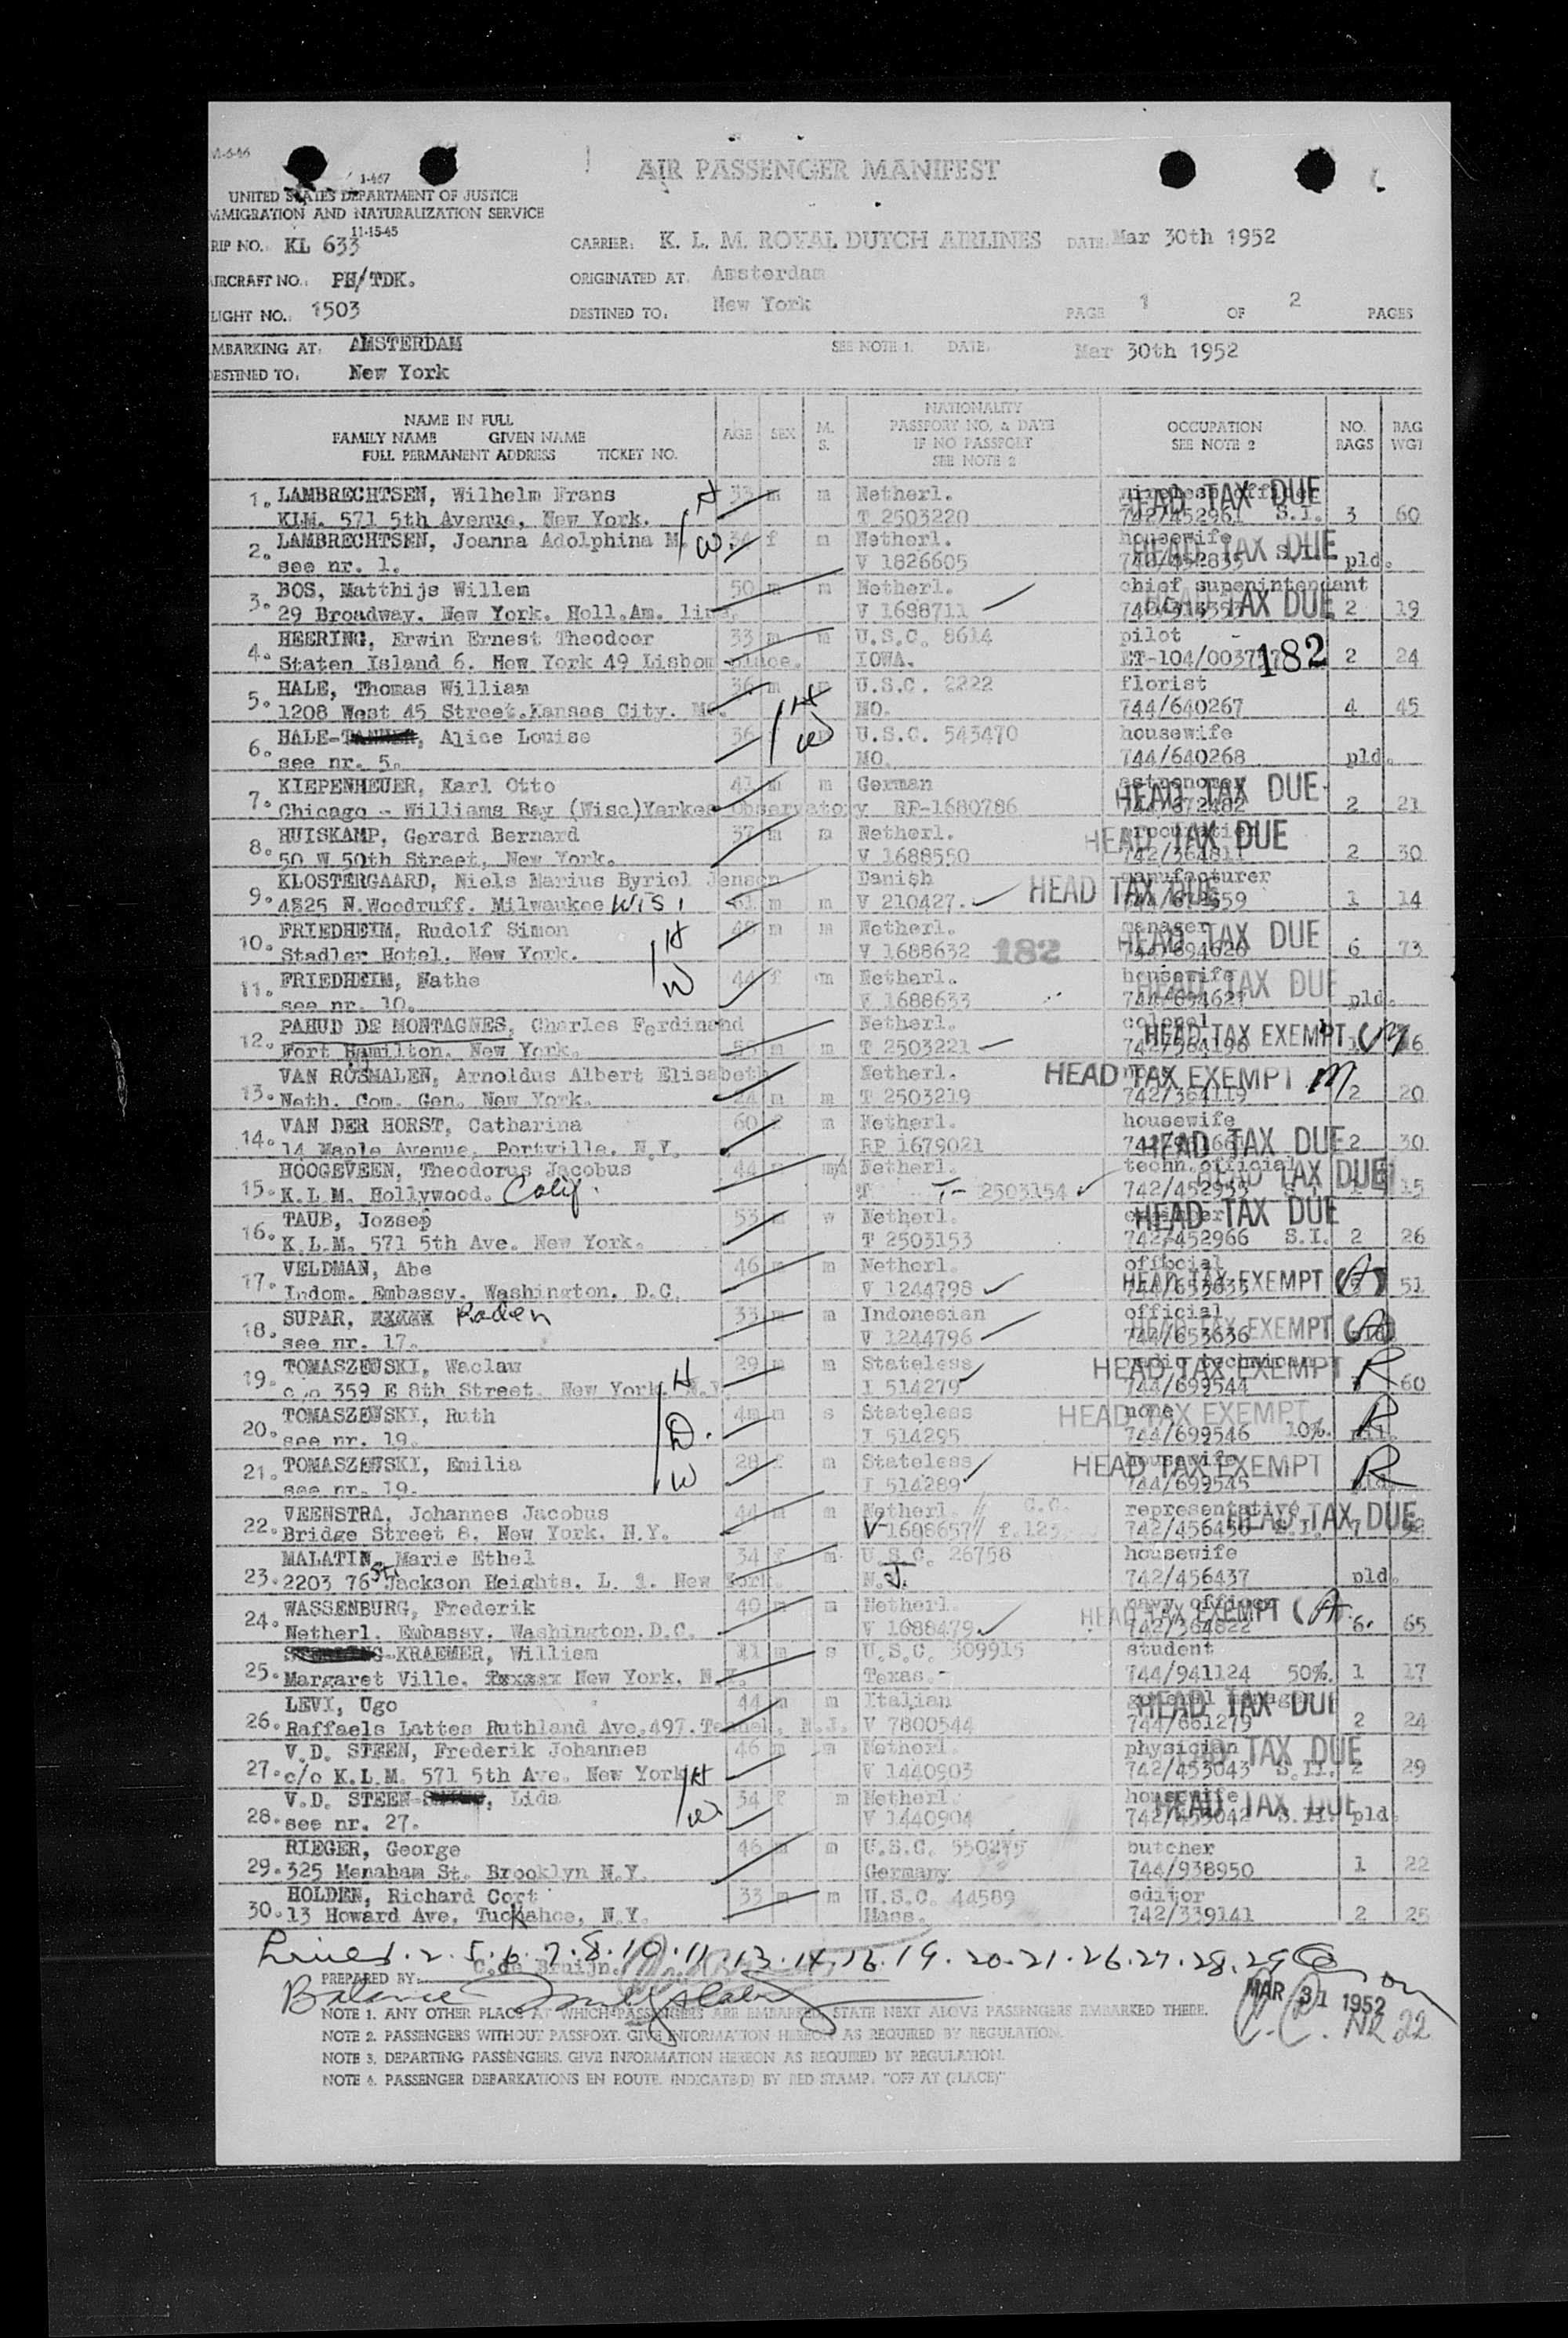 AIR PASSENGER MANIFEST
1-467
UNITED STATES DEPARTMENT OF JUSTICE
MMIGRATION AND NATURALIZATION SERVICE
11-15-45
RIP NO. KL 633 CARRIER: K. L. M. ROYAL DUTCH AIRLINES DATE: Mar 30th 1952
IRCRAFT NO.: PH/TDK. ORIGINATED AT: Amsterdam
LIGHT NO.: 1503 DESTINED TO: New York PAGE 1 OF 2 PAGES
MBARKING AT: AMSTERDAM SEE NOTE 1. DATE: Mar 30th 1952
ESTINED TO: New York
NAME IN FULL
FAMILY NAME GIVEN NAME
FULL PERMANENT ADDRESS TICKET NO.
AGE SEX M. S.
NATIONALITY
PASSPORT NO. & DATE
IF NO PASSPORT
SEE NOTE 2
OCCUPATION
SEE NOTE 2
NO. BAGS
BAG WGT
1. LAMBRECHTSEN, Wilhelm Frans H 33 m m Netherl. wireless officer HEAD TAX DUE
KLM. 571 5th Avenue, New York. T 2503220 742/452961 S.I. 3 60
2. LAMBRECHTSEN, Joanna Adolphina M. W. f m Netherl. housewife HEAD TAX DUE
see nr. 1. V 1826605 pld.
3. BOS, Matthijs Willem 50 m m Netherl. chief supenintendant
29 Broadway. New York. Holl.Am. line. V 1688711 HEAD TAX DUE 2 19
4. HEERING, Erwin Ernest Theodoor 33 m m U.S.C. 8614 pilot
Staten Island 6. New York 49 Lisbom place. IOWA. 182 2 24
5. HALE, Thomas William H 36 m m U.S.C. 2222 florist
1208 West 45 Street.Kansas City. MO. MO. 744/640267 4 45
6. HALE-, Alice Louise W 36 U.S.C. 543470 housewife
see nr. 5. MO. 744/640268 pld.
7. KIEPENHEUER, Karl Otto 41 m m German astronomer HEAD TAX DUE
Chicago - Williams Bay (Wisc)Yarkes Observatory RP-1680786 2 21
8. HUISKAMP, Gerard Bernard 37 m m Netherl. HEAD TAX DUE
50 W 50th Street, New York. V 1688550 742/364811 2 30
9. KLOSTERGAARD, Niels Marius Byriel Jensen Danish manufacturer
4825 N.Woodruff. Milwaukee Wis. 61 m m V 210427. HEAD TAX DUE 1 14
10. FRIEDHEIM, Rudolf Simon H 48 m m Netherl. manager HEAD TAX DUE
Stadler Hotel. New York. V 1688632 182 6 73
11. FRIEDHEIM, Nathe W 44 f m Netherl. housewife HEAD TAX DUE
see nr. 10. V 1688633 744/694621 pld.
12. PAHUD DE MONTAGNES, Charles Ferdinand Netherl. colonel
Fort Hamilton. New York. 55 m m T 2503221 HEAD TAX EXEMPT
13. VAN ROSMALEN, Arnoldus Albert Elisabeth Netherl. HEAD TAX EXEMPT M
Neth. Com. Gen. New York. 24 m m T 2503219 742/364119 2 20
14. VAN DER HORST, Catharina 60 f m Netherl. housewife
14 Maple Avenue. Portville. N.Y. RP 1679021 HEAD TAX DUE 2 30
15. HOOGEVEEN, Theodorus Jacobus 44 m Netherl. techn.official
K.L.M. Hollywood. Calif. T- 2503154 742/452955 HEAD TAX DUE 15
16. TAUB, Jozsep 53 m w Netherl. HEAD TAX DUE
K.L.M. 571 5th Ave. New York. T 2503153 742/452966 S.I. 2 26
17. VELDMAN, Abe 46 m m Netherl. official
Indom. Embassy. Washington. D.C. V 1244798 744/653635 HEAD TAX EXEMPT (A) 51
18. SUPAR, Raden 33 m m Indonesian official
see nr. 17. V 1244796 742/653636 HEAD TAX EXEMPT (A)
19. TOMASZEWSKI, Waclaw 29 m m Stateless radio technican
c/o 359 E 8th Street. New York. N.Y. H I 514279 744/699544 HEAD TAX EXEMPT R 60
20. TOMASZEWSKI, Ruth D. 4m m s Stateless none
see nr. 19. I 514295 744/699546 10%. HEAD TAX EXEMPT R
21. TOMASZEWSKI, Emilia W 28 f m Stateless housewife
see nr. 19. I 514289 744/699545 HEAD TAX EXEMPT R
22. VEENSTRA, Johannes Jacobus 44 m m Netherl. C.C. representative
Bridge Street 8. New York. N.Y. V-1688657 742/456436 HEAD TAX DUE
23. MALATIN, Marie Ethel 34 f m U.S.C. 26758 housewife
2203 76 St Jackson Heights. L. I. New York. N.J. 742/456437 pld.
24. WASSENBURG, Frederik 40 m m Netherl. navy officer
Netherl. Embassy. Washington.D.C. V 1688479 742/364822 HEAD TAX EXEMPT (A. 6. 65
25. -KRAEMER, William m s U.S.C. 309915 student
Margaret Ville. New York. N.Y. Texas. 744/941124 50%. 1 17
26. LEVI, Ugo 44 m m Italian general manager HEAD TAX DUE
Raffaels Lattes Ruthland Ave.497.Teanek. N.J. V 7800544 744/661279 2 24
27. V.D. STEEN, Frederik Johannes 46 m m Netherl. physician HEAD TAX DUE
c/o K.L.M. 571 5th Ave. New York H V 1440903 742/453043 S.II. 2 29
28. V.D. STEEN-, Lida W. 34 f m Netherl. housewife HEAD TAX DUE
see nr. 27. V 1440904 742/453042 S.II. pld.
29. RIEGER, George 46 m m U.S.C. 550275 butcher
325 Menaham St. Brooklyn N.Y. Germany 744/938950 1 22
30. HOLDEN, Richard Cort 33 m m U.S.C. 44589 editor
13 Howard Ave. Tuckahoe, N.Y. Mass. 742/339141 2 25
Lines 1. 2. 5. 6. 7. 8. 10. 11. 13. 14. 16. 19. 20. 21. 26. 27. 28. 29
PREPARED BY: C.de Bruijn.
Balance
MAR 31 1952
NOTE 1. ANY OTHER PLACE AT WHICH PASSENGERS ARE EMBARKED, STATE NEXT ABOVE PASSENGERS EMBARKED THERE.
C.C. NR 22
NOTE 2. PASSENGERS WITHOUT PASSPORT. GIVE INFORMATION HEREON AS REQUIRED BY REGULATION.
NOTE 3. DEPARTING PASSENGERS. GIVE INFORMATION HEREON AS REQUIRED BY REGULATION.
NOTE 4. PASSENGER DEBARKATIONS EN ROUTE. INDICATE(D) BY RED STAMP: "OFF AT (PLACE)"